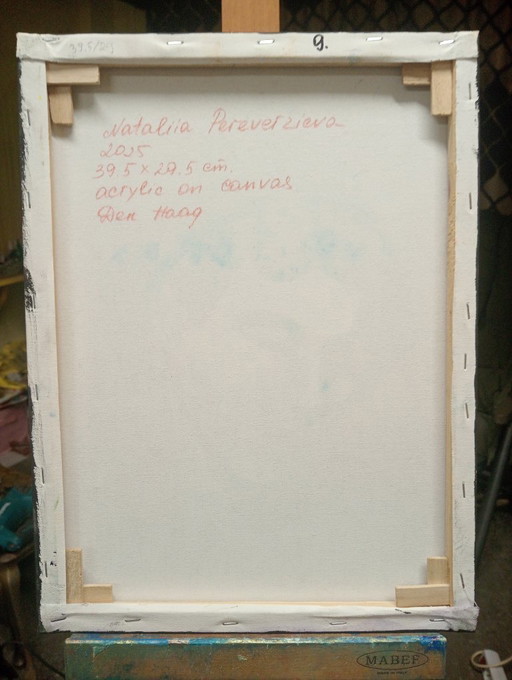 9.
Nataliia Pereverzieva
2025
39.5 × 29.5 cm.
acrylic on canvas
Den Haag
MABEF